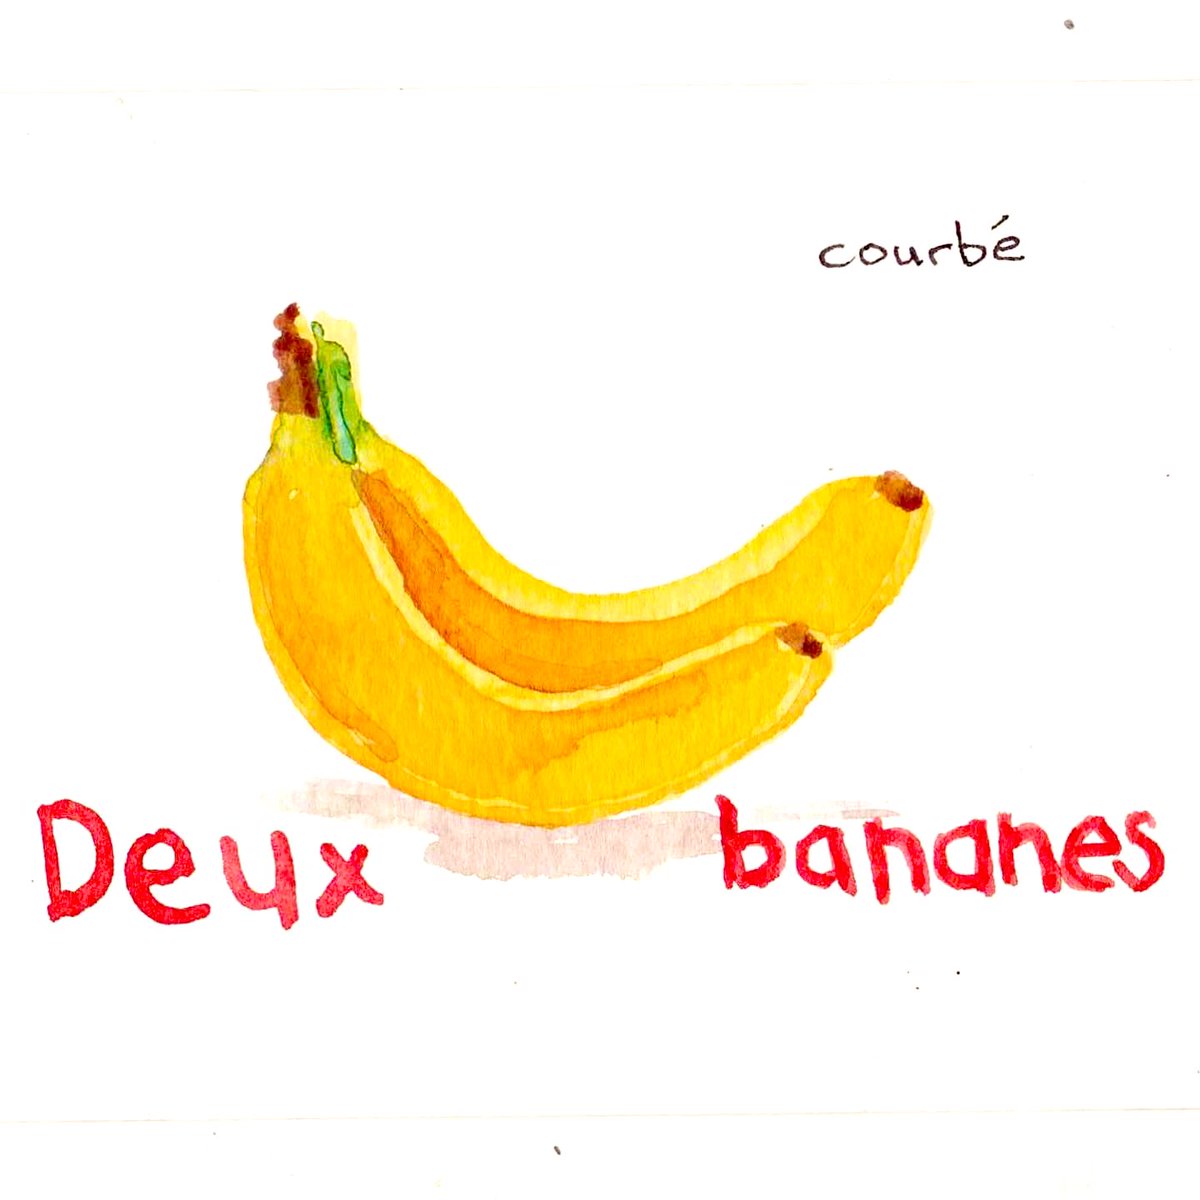 courbé
Deux bananes